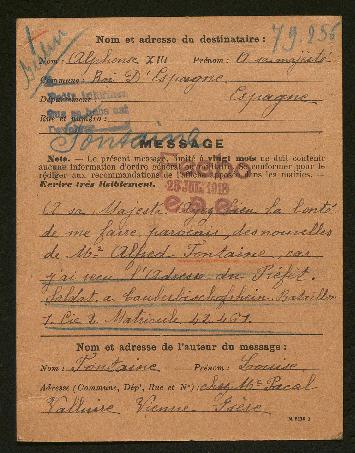 79.956
Nom et adresse du destinataire :
Nom : Alphonse XIII Prénom : A sa majesté
Commune : Roi D'Espagne
Département : Espagne
Rue et numéro :
Fontaine
MESSAGE
Nota. — Le présent message, limité à vingt mots ne doit contenir
aucune information d'ordre général conformer pour le
rédiger aux recommandations de dans les mairies.
Ecrire très lisiblement.
25 JUIL 1918
A sa Majesté la bonté
de me faire parvenir des nouvelles
de Mr Alfred Fontaine, car
j'ai reçu l'Adresse du Préfet.
Soldat a Bataillon
7. Cie 2 Matricule 42.461.
Nom et adresse de l'auteur du message :
Nom : Fontaine Prénom : Louise
Adresse (Commune, Dépt, Rue et No) : chez Mr Pascal
Vienne Isère